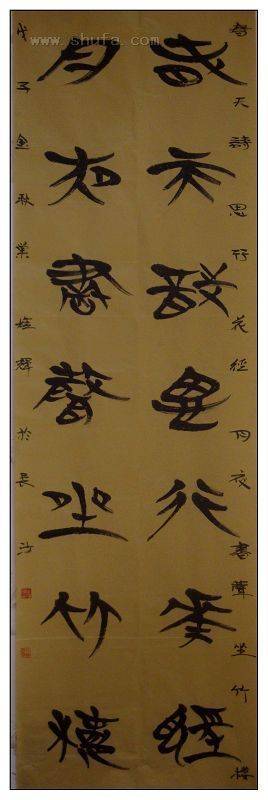 春天詩思行花經月夜書聲坐竹樓
春天詩思行花經
月夜書聲坐竹樓
戊子金秋於長沙
www.shufa.com